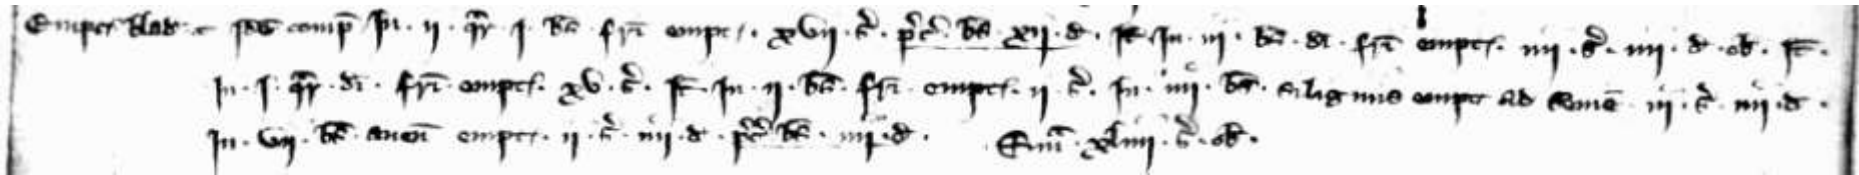 Empcͻ blad · Idē comp̄ In · ij · qr̄ · j · bȝ frī empt · xvij · s̄ · p̄c̄ · bȝ xij · d · It̄ · In · iij · bȝ · dī · frī empt · iiij · s̄ · iiij · d · ob̄ · It̄ ·
In · j · qr̄ · dī · frī empt · xv · s̄ · It̄ · In · ij · bȝ · frī empt · ij · s̄ · In · iiij · bȝ · siliginis empt ad semē iij · s̄ · iiij · d ·
In · vij · bȝ · auen̄ empt · ij · s̄ · iiij · d · p̄c̄ bȝ · iiij · d · Sum̄ · xliiij · s̄ · ob̄ ·